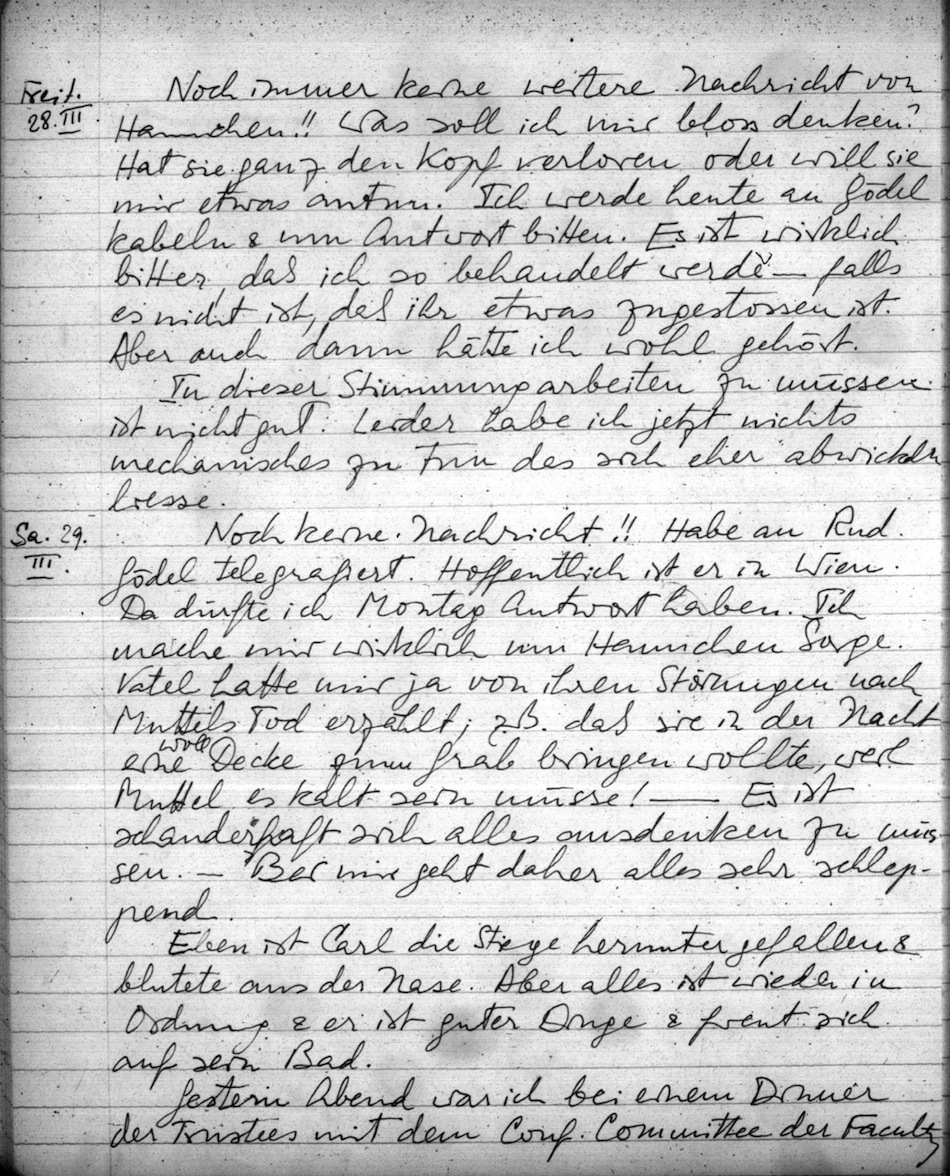 Freit. 28.III
Noch immer keine weitere Nachricht von
Hannchen!! Was soll ich mir bloss denken?
Hat sie ganz den Kopf verloren oder will sie
mir etwas antun. Ich werde heute an Gödel
kabeln & um Antwort bitten. Es ist wirklich
bitter, daß ich so behandelt werde — falls
es nicht ist, daß ihr etwas zugestossen ist.
Aber auch dann hätte ich wohl gehört.
In dieser Stimmung arbeiten zu müssen
ist nicht gut. Leider habe ich jetzt nichts
mechanisches zu tun das sich eher abwickeln
liesse.
Sa. 29. III.
Noch keine Nachricht!! Habe an Rud.
Gödel telegrafiert. Hoffentlich ist er in Wien.
Da dürfte ich Montag Antwort haben. Ich
mache mir wirklich um Hannchen Sorge.
Vatel hatte mir ja von ihren Störungen nach
Muttels Tod erzählt; z.B. daß sie in der Nacht
eine Wolldecke zum Grab bringen wollte, weil
Muttel es kalt sein müsse! — Es ist
schauderhaft sich alles ausdenken zu müs-
sen. — Bei mir geht daher alles sehr schlep-
pend.
Eben ist Carl die Stiege heruntergefallen &
blutete aus der Nase. Aber alles ist wieder in
Ordnung & er ist guter Dinge & freut sich
auf sein Bad.
Gestern Abend war ich bei einem Dinner
der Trustees mit dem Conf. Committee der Faculty